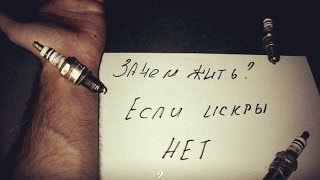 Зачем жить?
Если искры
НЕТ